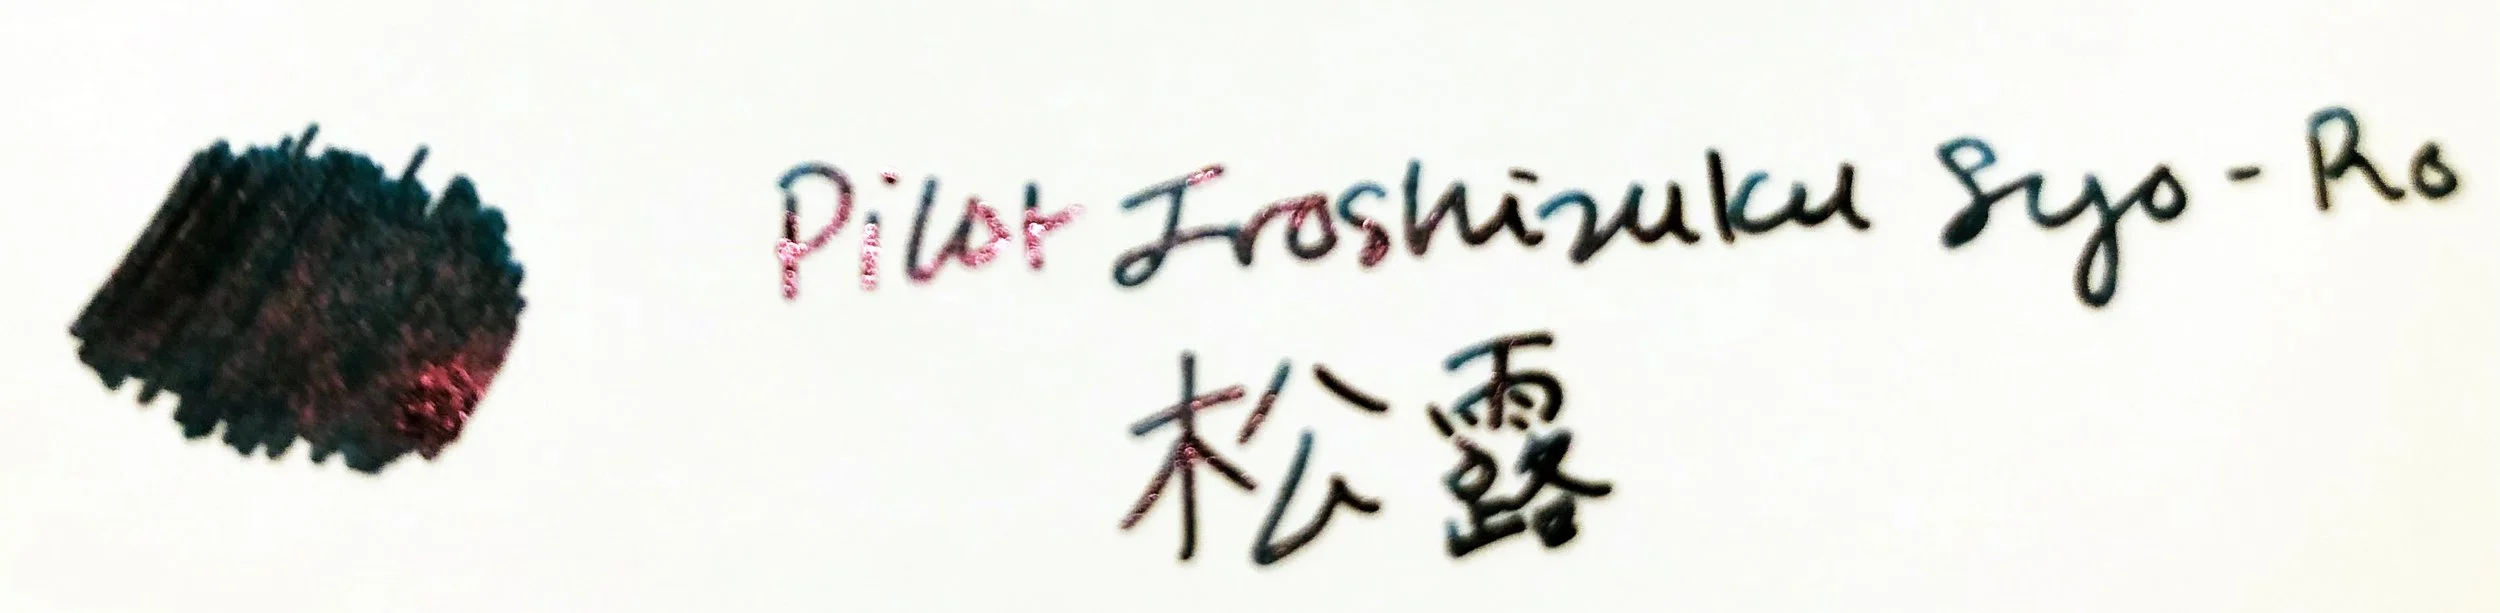 Pilot Iroshizuku Syo-Ro
松露